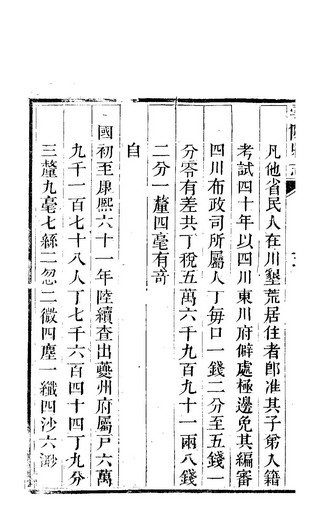 凡他省民人在川墾荒居住者卽准其子弟入籍
考試四十年以四川東川府僻處極邊免其編審
四川布政司所屬人丁每口一錢二分至五錢一
分零有差共丁稅五萬六千九百九十一兩八錢
二分一釐四毫有竒
自
國初至康熙六十一年陸續查出夔州府屬戸六萬
九千一百七十八人丁七千六百四十四丁九分
三釐九毫七絲二忽二微四塵一纖四沙六渺